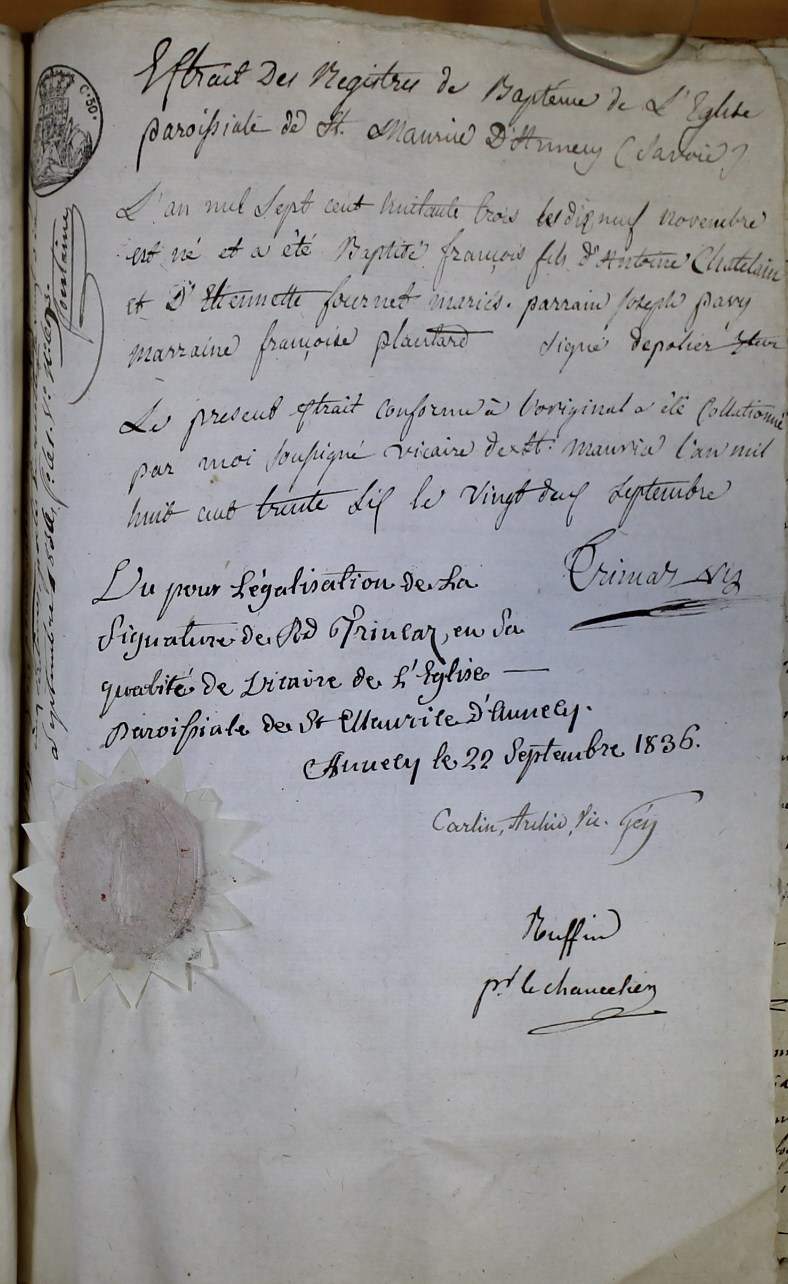 C. 50.
Extrait Des Registres de Baptême de L'Eglise
paroissiale de St. Maurice D'Annecy (Savoie)
L'an mil sept cent huitante trois le dix neuf novembre
est né et a été Baptisé françois fils d'Antoine Chatelain
et D'Etiennette fournet mariés. parrain Joseph pavy
marraine françoise plantard signé depolier
Le present extrait conforme à l'original a été Collationné
par moi soussigné vicaire de St. maurice l'an mil
huit cent trente six le vingt deux septembre
Trincaz vic
Vu pour Légalisation de La
Signature de Rd Trincaz, en Sa
qualité de Vicaire de L'Eglise
paroissiale de St Maurice d'Annecy.
Annecy le 22 Septembre 1836.
Carlin, Archid, Vic. Gén
Ruffin
pr. le chancelier
septembre
fontaine